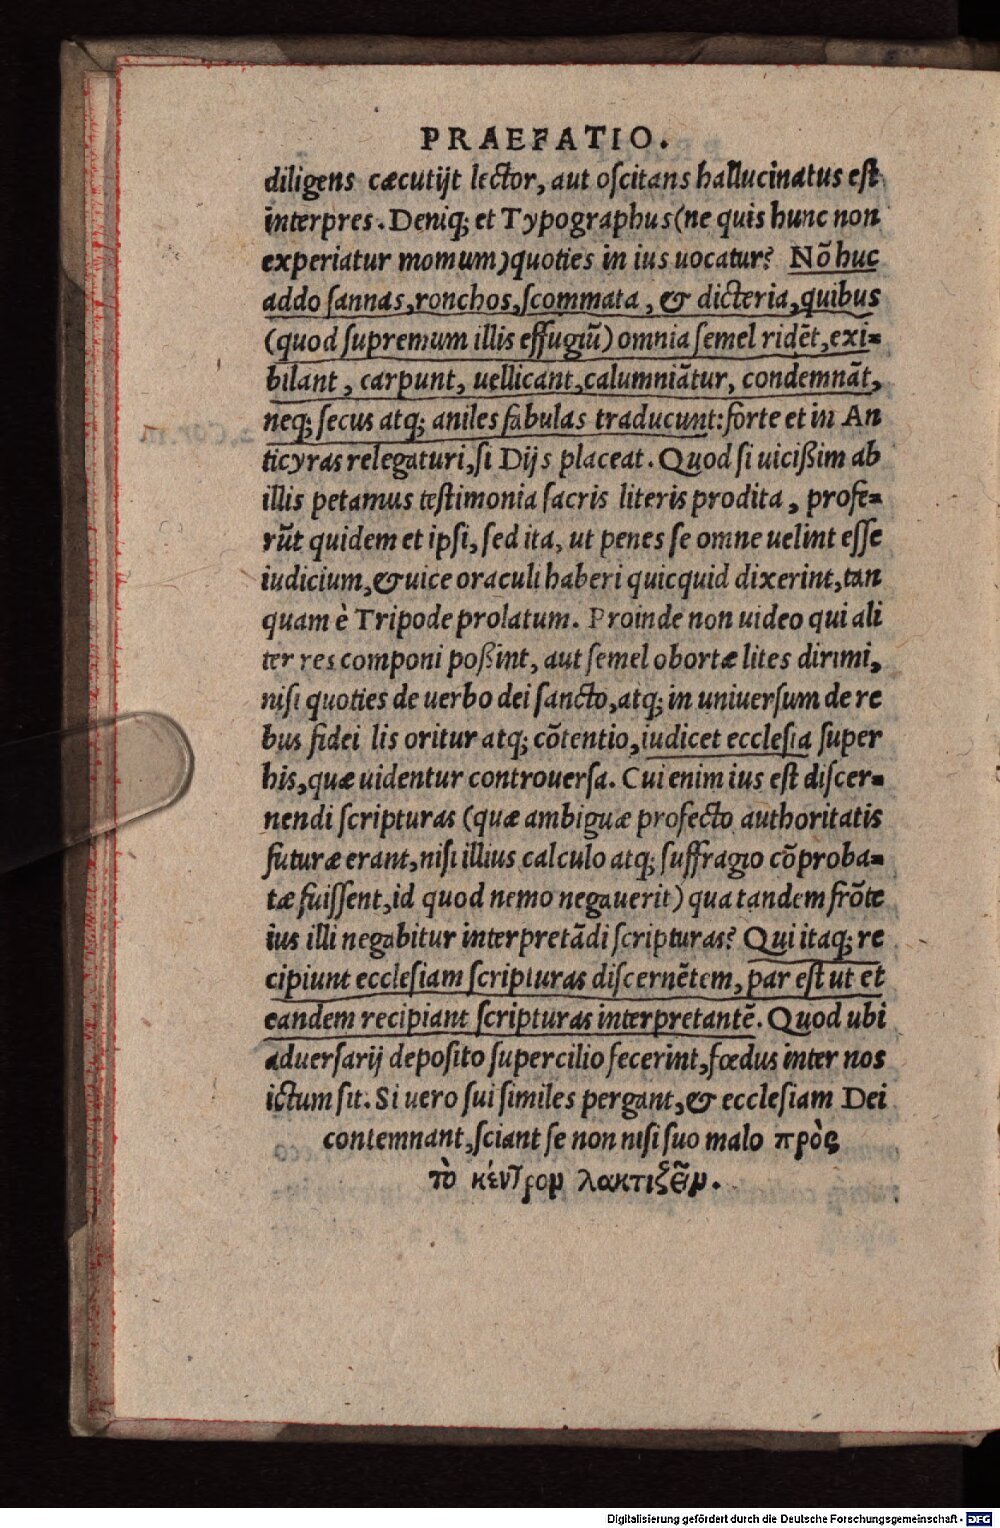 PRAEFATIO.
diligens cæcutijt lector, aut oſcitans hallucinatus eſt
interpres. Deniq; et Typographus (ne quis hunc non
experiatur momum) quoties in ius uocatur? Nõ huc
addo ſannas, ronchos, ſcommata, & dicteria, quibus
(quod ſupremum illis effugiũ) omnia ſemel ridẽt, exi-
bilant, carpunt, uellicant, calumniãtur, condemnãt,
neq; ſecus atq; aniles fabulas traducunt: forte et in An
ticyras relegaturi, ſi Dijs placeat. Quod ſi uicißim ab
illis petamus teſtimonia ſacris literis prodita, profe-
rũt quidem et ipſi, ſed ita, ut penes ſe omne uelint eſſe
iudicium, & uice oraculi haberi quicquid dixerint, tan
quam è Tripode prolatum. Proinde non uideo qui ali
ter res componi poßint, aut ſemel obortæ lites dirimi,
niſi quoties de uerbo dei ſancto, atq; in uniuerſum de re
bus fidei lis oritur atq; cõtentio, iudicet eccleſia ſuper
his, quæ uidentur controuerſa. Cui enim ius eſt diſcer-
nendi ſcripturas (quæ ambiguæ profecto authoritatis
futuræ erant, niſi illius calculo atq; ſuffragio cõproba-
tæ fuiſſent, id quod nemo negauerit) qua tandem frõte
ius illi negabitur interpretãdi ſcripturas? Qui itaq; re
cipiunt eccleſiam ſcripturas diſcernẽtem, par eſt ut et
eandem recipiant ſcripturas interpretantẽ. Quod ubi
aduerſarij depoſito ſupercilio fecerint, fœdus inter nos
ictum ſit. Si uero ſui ſimiles pergant, & eccleſiam Dei
contemnant, ſciant ſe non niſi ſuo malo πρὸς
τὸ κέντρον λακτιζεῖν.
Digitalisierung gefördert durch die Deutsche Forschungsgemeinschaft - DFG